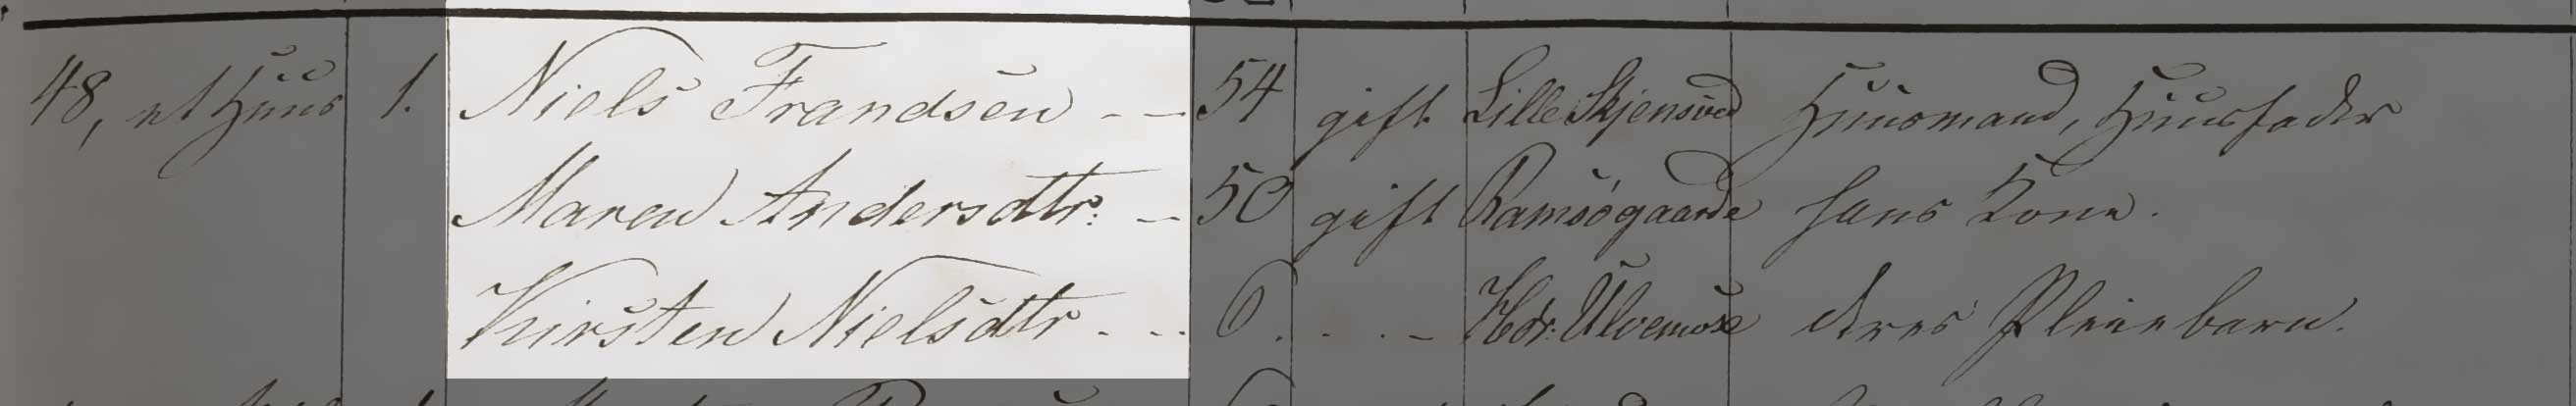 48, et Huus 1. Niels Frandsen - - 54 gift Lille Skjensved Huusmand, Huusfader
Maren Andersdtr: - 50 gift Ramsøgaarde hans Kone.
Kirsten Nielsdtr - - - 6. . . - Hdr. Ulvemose deres Pleiebarn.